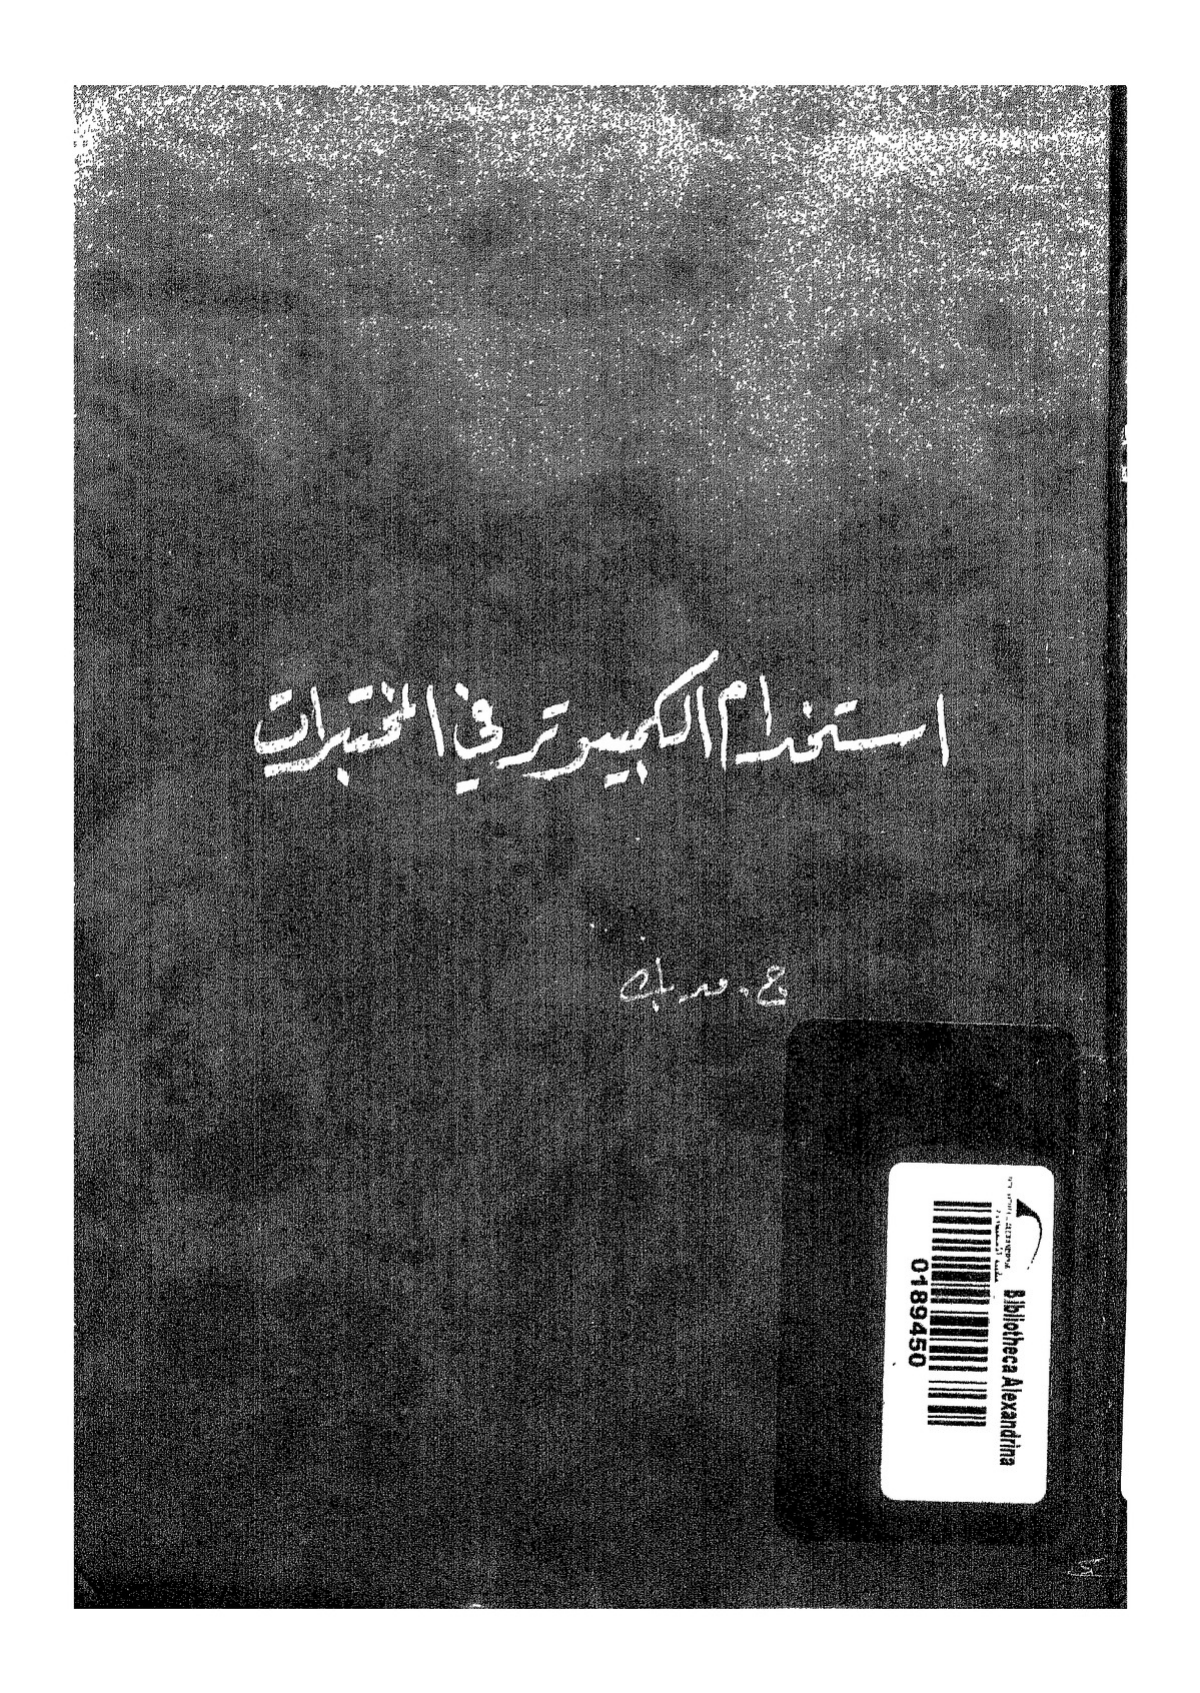 استخدام الكمبيوتر في المختبرات
ج.
Bibliotheca Alexandrina
0189450